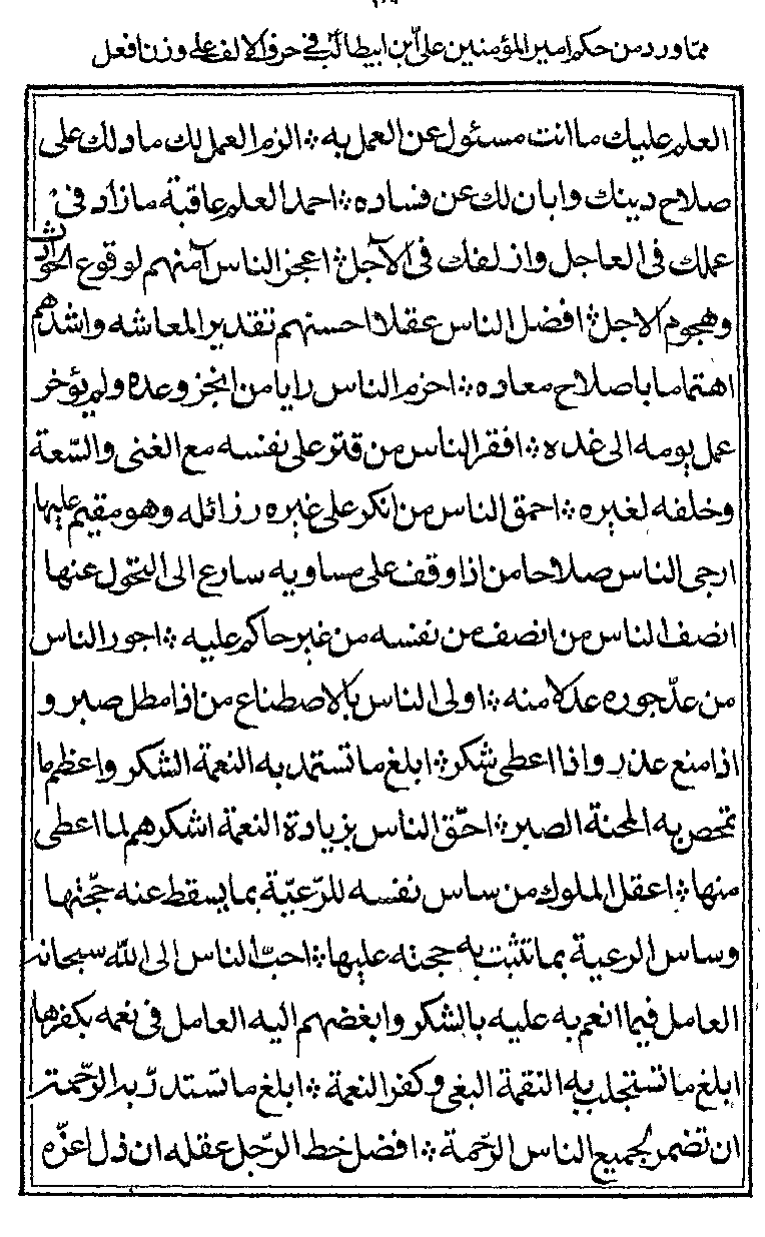 ممّا ورد من حكم امير المؤمنين علىّ ابن ابيطالب في حرف الالف على وزن افعل
العلم عليك ما انت مسئول عن العمل به ؛ الزم العمل لك ما دلك على
صلاح دينك وابان لك عن فساده ؛ احمد العلم عاقبة ما زاد فى
عملك فى العاجل وازلفك فى الآجل ؛ اعجز الناس آمنهم لوقوع الحوادث
وهجوم الاجل ؛ افضل الناس عقلا احسنهم تقديرا لمعاشه واشدهم
اهتماما باصلاح معاده ؛ احزم الناس رايا من انجز وعده ولم يؤخر
عمل يومه الى غده ؛ افقر الناس من قتر على نفسه مع الغنى والسّعة
وخلفه لغيره ؛ احمق الناس من انكر على غيره رزائله وهو مقيم عليها
ارجى الناس صلاحا من اذا وقف على مساويه سارع الى التحّول عنها
انصف الناس من انصف من نفسه من غير حاكم عليه ؛ اجور الناس
من عدّ جوره عدلا منه ؛ اولى الناس بالاصطناع من اذا مطل صبر و
اذا منع عذر واذا اعطى شكر ؛ ابلغ ما تستمد به النعمة الشكر واعظم ما
تمحص به المحنة الصبر ؛ احقّ الناس بزيادة النعمة اشكرهم لما اعطى
منها ؛ اعقل الملوك من ساس نفسه للرّعيّة بما يسقط عنه حجّتها
وساس الرعية بما تثبت به حجته عليها ؛ احبّ الناس الى الله سبحانه
العامل فيما انعم به عليه بالشكر وابغضهم اليه العامل فى نعمه بكفرها
ابلغ ما تستجلب به النقمة البغى وكفر النعمة ؛ ابلغ ما تستدرّ به الرّحمة
ان تضمر لجميع الناس الرّحمة ؛ افضل حظ الرّجل عقله ان ذل اعزّه